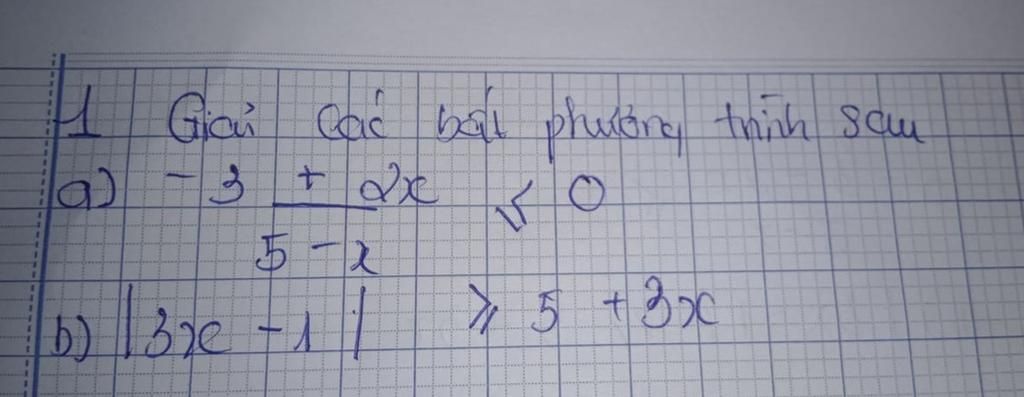 1 Giải các bất phương trình sau
a) - 3 + 2x ≤ 0
5 - x
b) |3x - 1| ≥ 5 + 3x